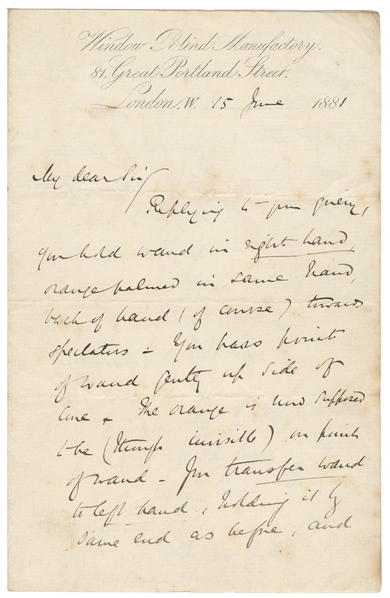 Window Blind Manufactory.
81, Great Portland Street.
London, W. 15 June 1881
My dear Sir
Replying to your query,
you hold wand in right hand,
orange palmed in same hand,
back of hand (of course) towards
spectators - You pass point
of wand gently up side of
cone - The orange is now supposed
to be (though invisible) on point
of wand - You transfer wand
to left hand, holding it by
same end as before, and